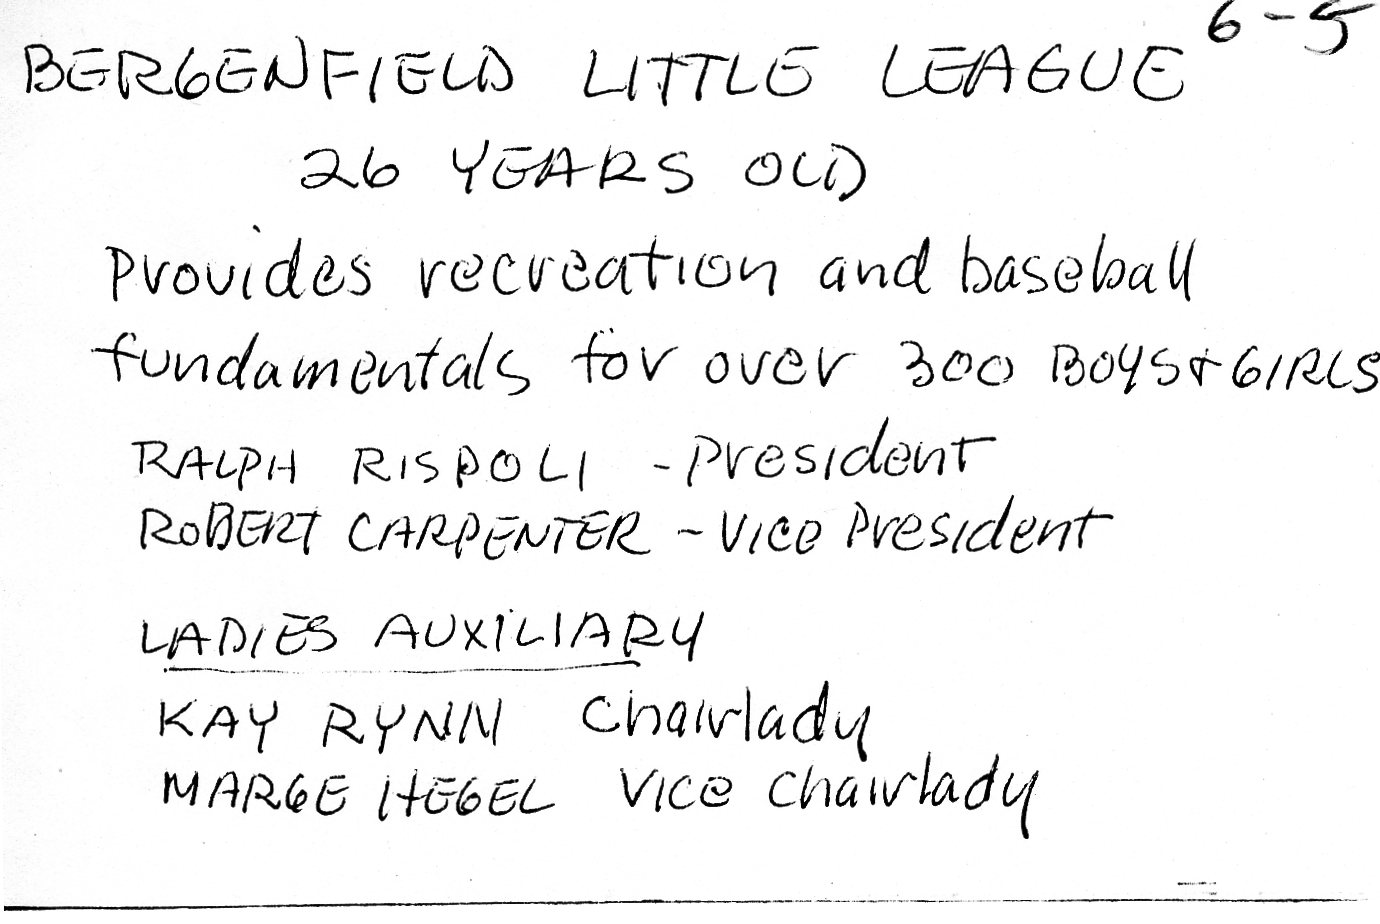 6-5
BERGENFIELD LITTLE LEAGUE
26 YEARS OLD
Provides recreation and baseball
fundamentals for over 300 BOYS + GIRLS
RALPH RISPOLI - President
ROBERT CARPENTER - Vice President
LADIES AUXILIARY
KAY RYNN Chairlady
MARGE HEGEL Vice Chairlady